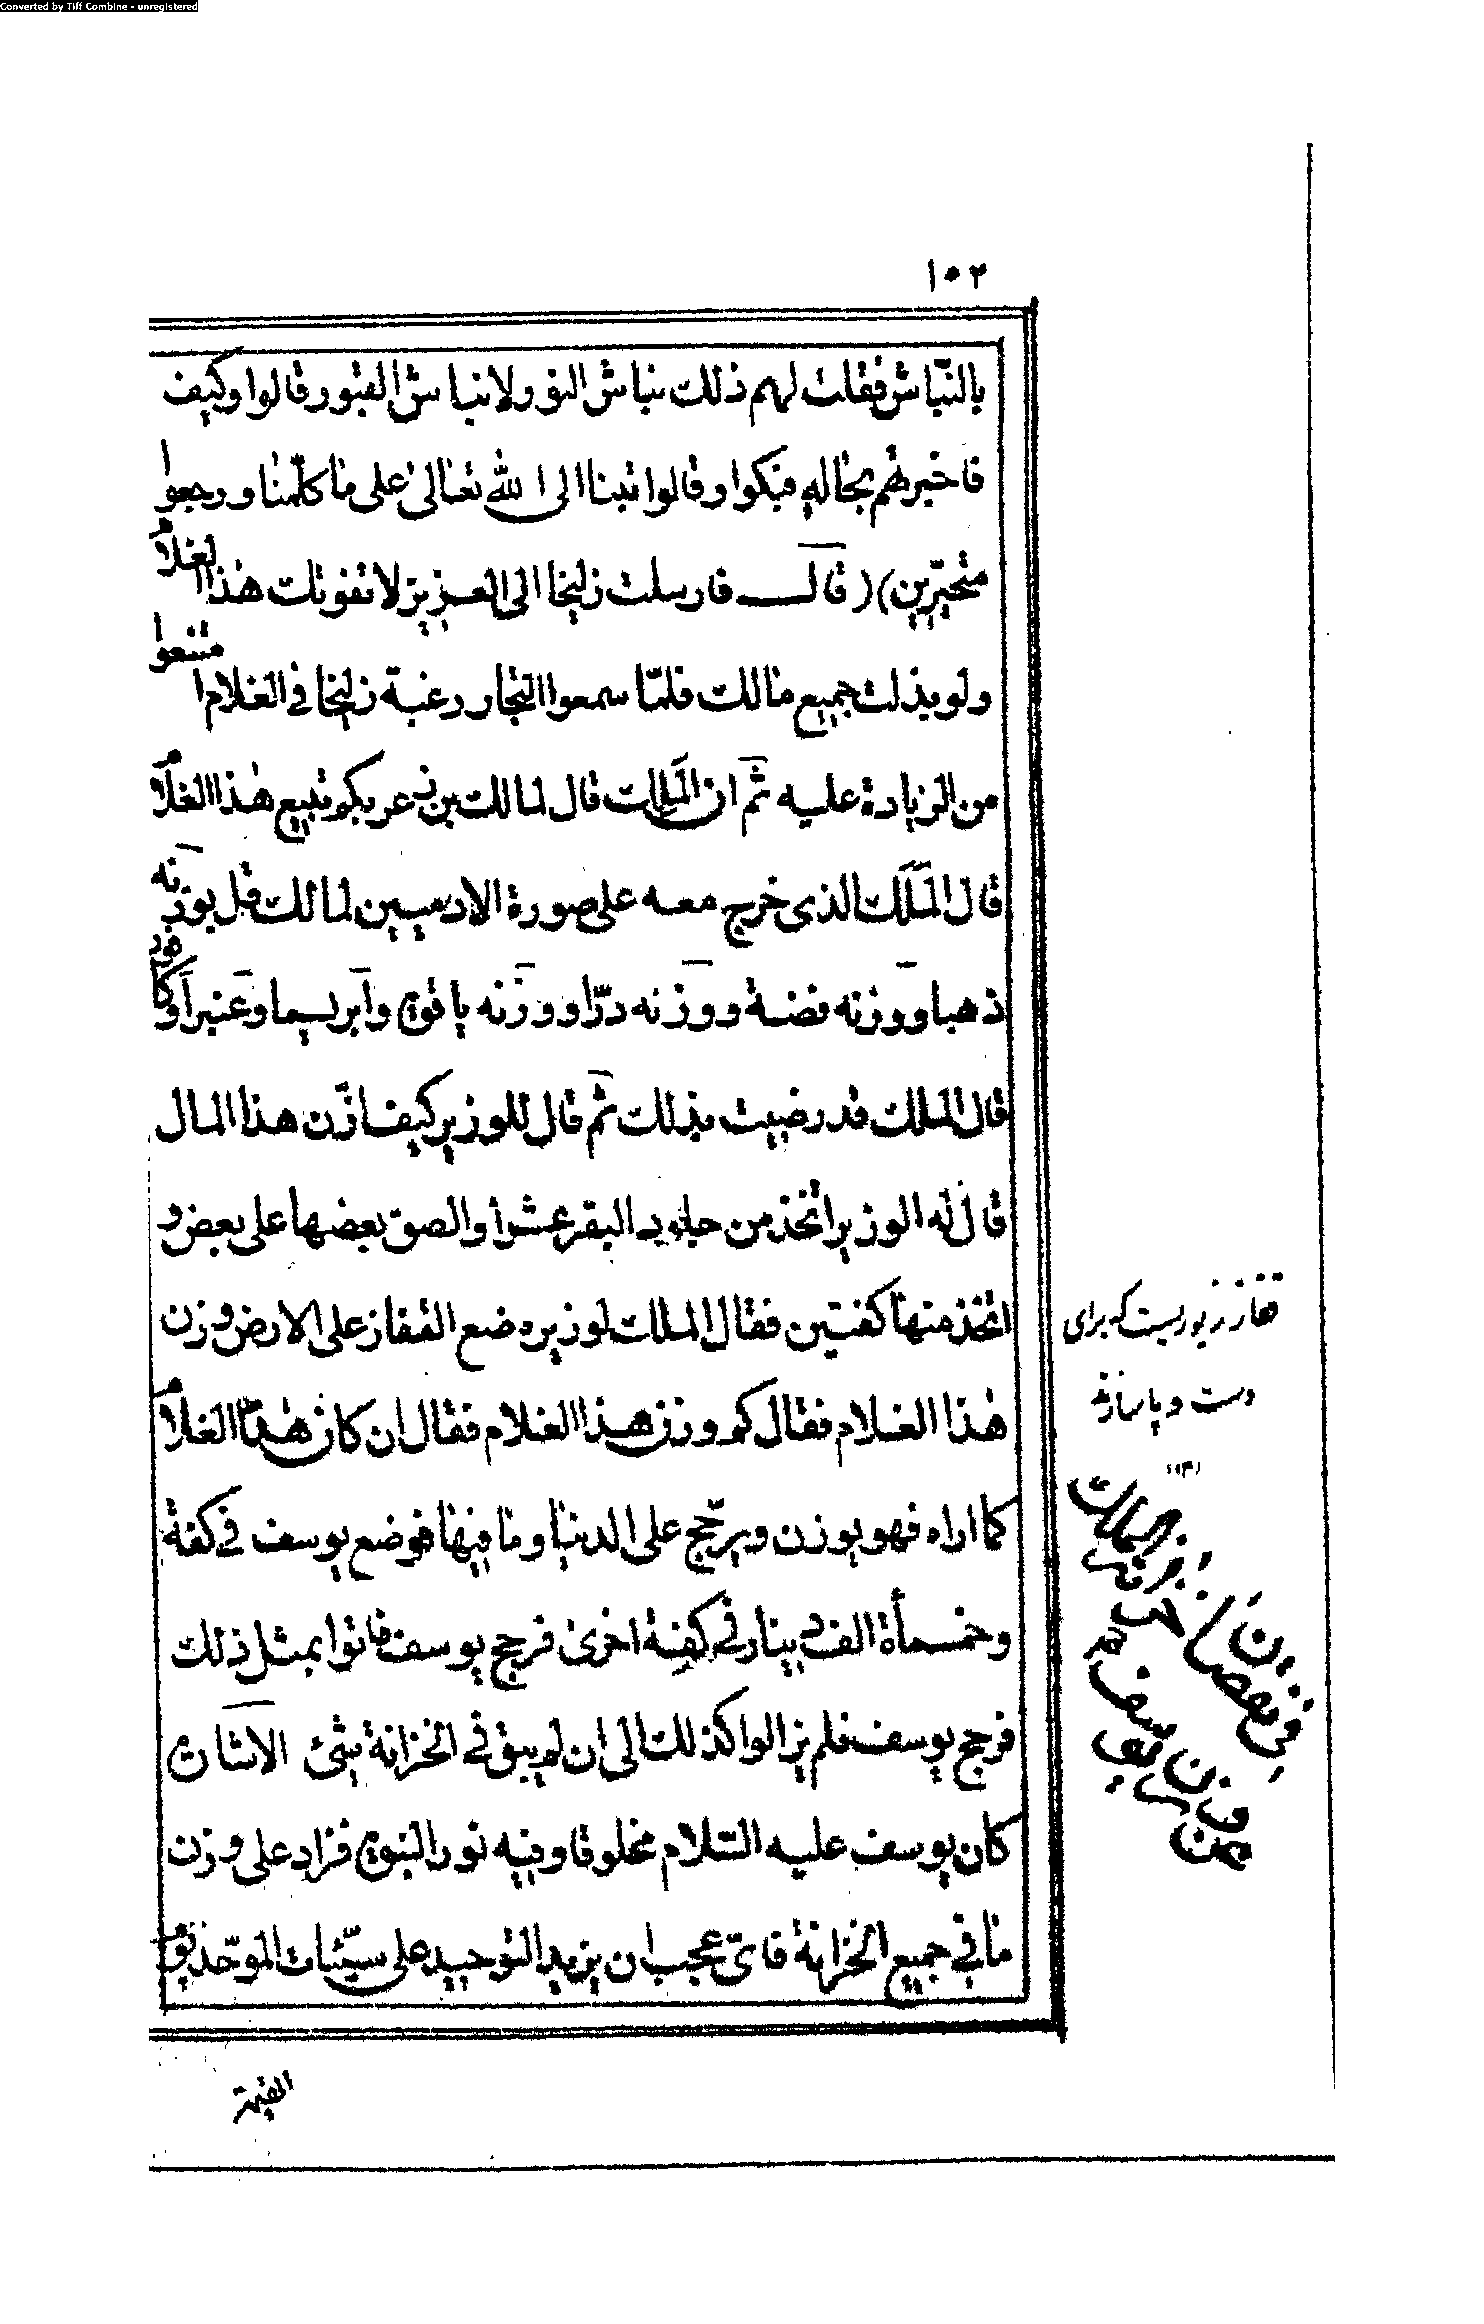 Converted by Tiff Combine - unregistered
١٠٢
بالنّباش فقلت لهم ذلك نباش النور لا نباش القبور قالوا وكيف
فاخبرتهم بحاله فبكوا وقالوا تبنا الى الله تعالى على ما كلّمنا ورجعوا
متحيّرين) (قال فارسلت زليخا الى العزيز لا تفوتك هذا الغلام
ولو بذلت جميع مالك فلمّا سمعوا التجار رغبة زليخا في الغلام امتنعوا
من الزيادة عليه ثم ان الملك قال لمالك بن زعر بكم تبيع هذا الغلام
قال الملك الذى خرج معه على صورة الادميين لمالك قل بوزنه
ذهبا ووزنه فضة ووزنه درّا ووزنه ياقوتا وابريسما وعنبرا وكافور
قال الملك قد رضيت بذلك ثم قال للوزير كيف ازن هذا المال
قال له الوزير اتخذ من جلود البقر عشرا والصق بعضها على بعض و
اتخذ منها كفتين فقال الملك لوزيره ضع القفاز على الارض وزن
هذا الغلام فقال كم وزن هذا الغلام فقال ان كان هذا الغلام
كما اراه فهو يوزن ويرجّح على الدنيا وما فيها فوضع يوسف في كفة
وخمسمأة الف دينار في كفة اخرى فرجح يوسف فاتوا بمثل ذلك
فرجح يوسف فلم يزالوا كذلك الى ان لم يبق في الخزانة شئ الاشارة
كان يوسف عليه السّلام مخلوقا وفيه نور النبوة فزاد على وزن
ما في جميع الخزانة فاىّ عجب ان يزيد التوحيد على سيّئات الموحّد يوم
القيمة
قفاز زيوريست كه براى
دست و پا سازند